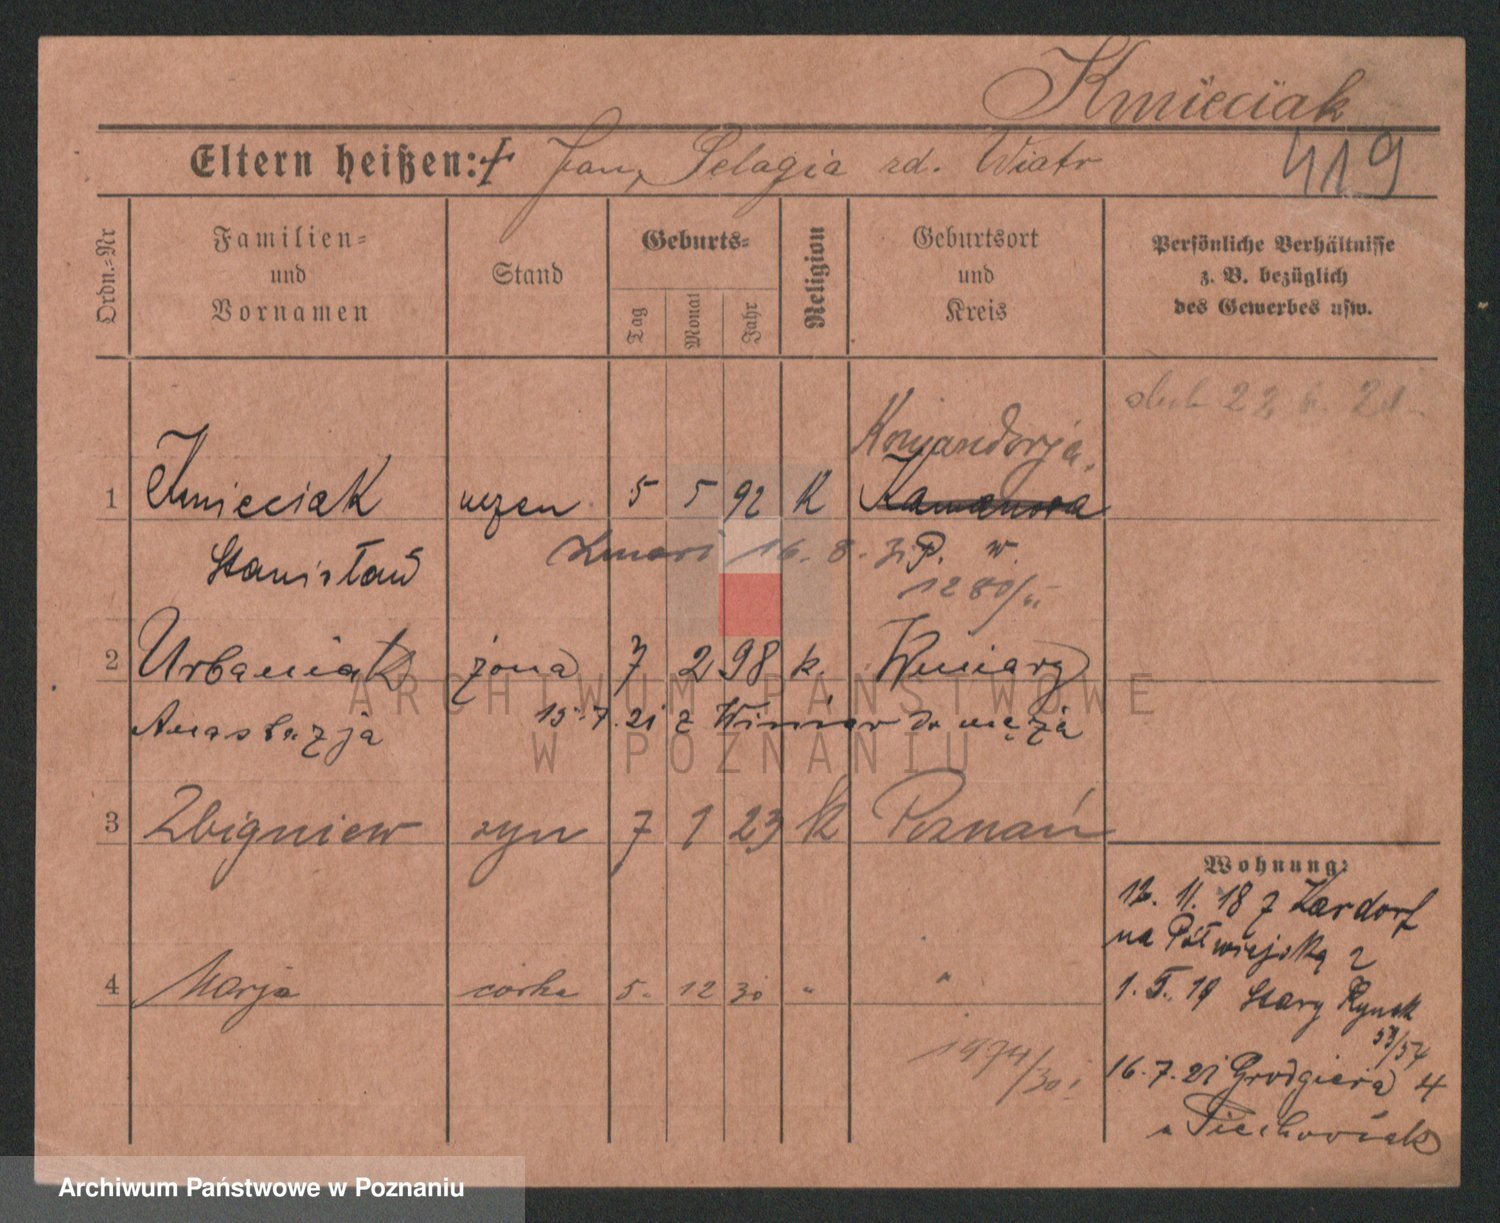 Kmieciak
Eltern heißen: + Jan, Pelagia zd. Wiatr
419
Ordn.=Nr
Familien=
und
Vornamen
Stand
Geburts=
Tag
Monat
Jahr
Religion
Geburtsort
und
Kreis
Persönliche Verhältnisse
z. B. bezüglich
des Gewerbes usw.
22 6. 21
Komandorja
1 Kmieciak uczen 5 5 92 K
Stanisław zmarł 16. 8. P. w
1280/
2 Urbaniak żona 7 2 98 k. Winiary
Anastazja 15.7.21 z Winiar do męża
3 Zbigniew syn 7 1 23 k Poznań
4 Marja córka 5. 12 30 " "
1974/30
Wohnung:
12. 11. 18 z
na Półwiejską 2
1. 5. 19 Stary Rynek
53/54
16. 7. 21 Grodgiera 4
u Piechowiak
ARCHIWUM PAŃSTWOWE
W POZNANIU
Archiwum Państwowe w Poznaniu